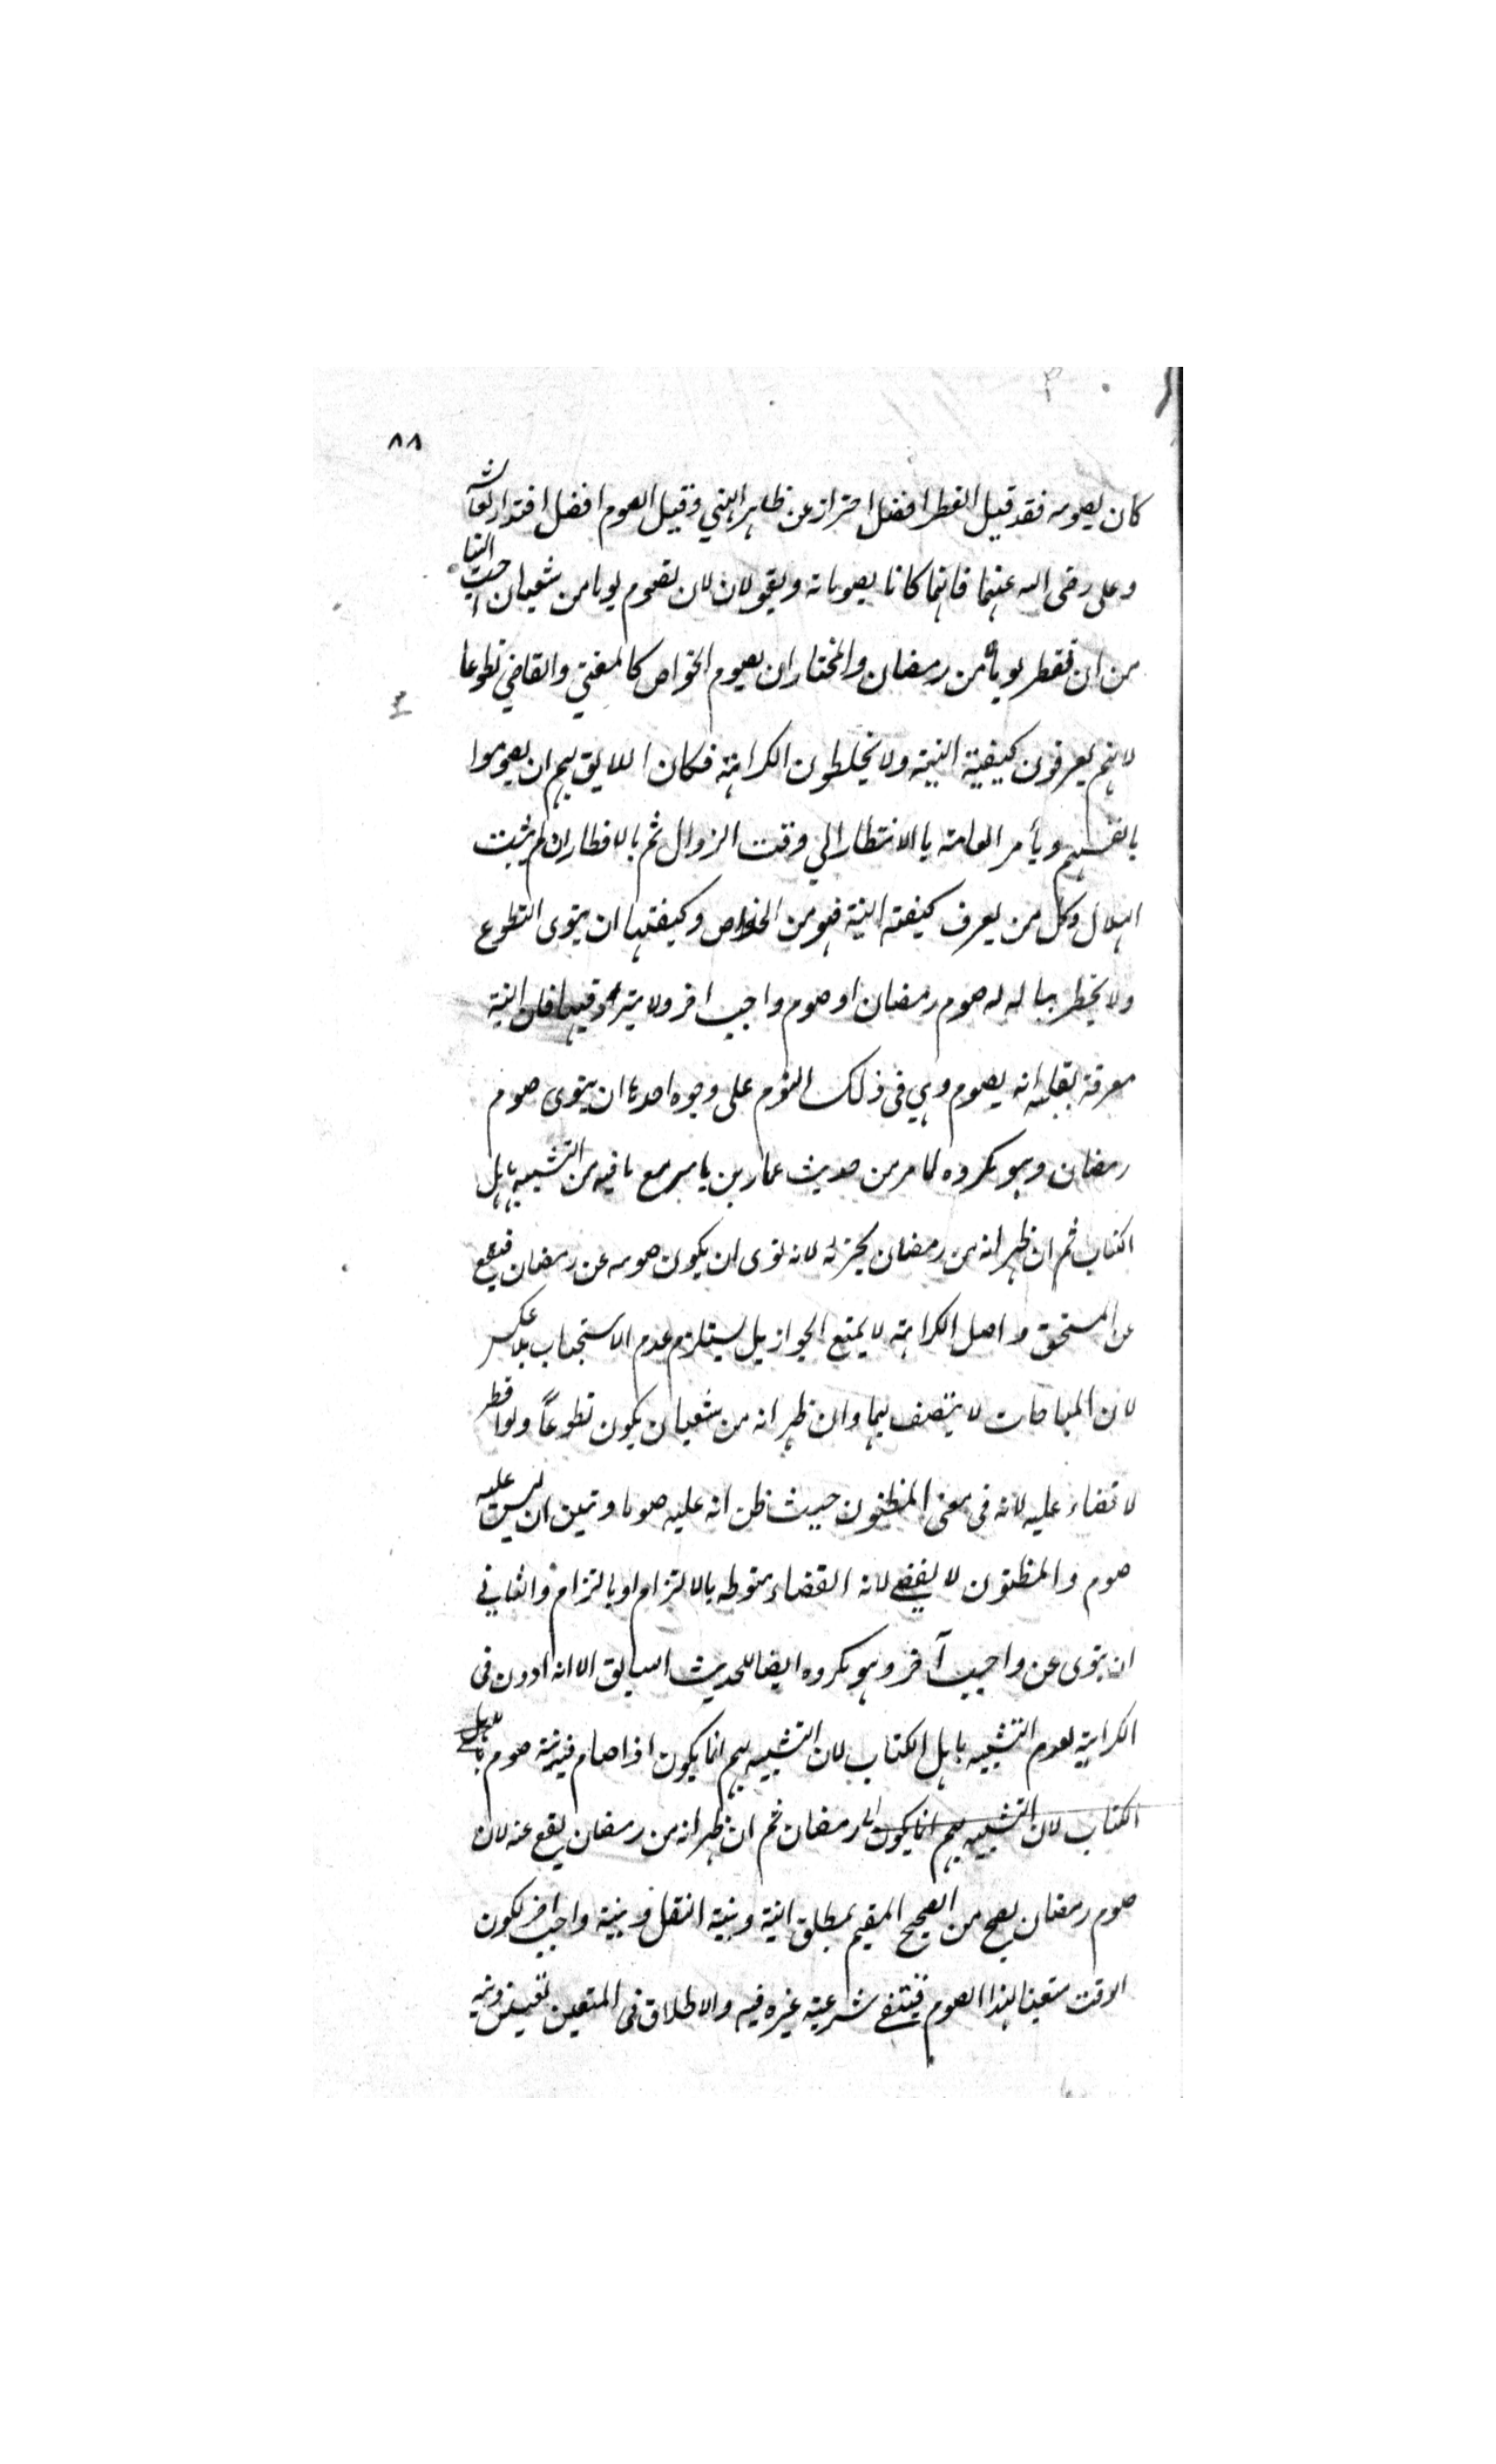 ٨٨
كان يصومه فقد قيل الفطر افضل احترازعن ظاهر النهي وقيل الصوم افضل اقتدا بعائشة
وعلى رضى الله عنهما فانهما كانا يصومانه ويقولان لان نصوم يوما من شعبان احب الينا
من ان نفطر يوما من رمضان والمختار ان يصوم الخواص كالمفتي والقاضي تطوعا
لانهم يعرفون كيفية النية ولا يخلطون الكراهة فكان اللايق بهم ان يصوموا
بانفسهم ويأمر العامة باالانتظار الي وقت الزوال ثم بالافطار ان لم يثبت
الهلال وكل من يعرف كيفته النية فهو من الخواص وكيفتها ان ينوى التطوع
ولا يخطر بباله صوم رمضان او صوم واجب اخر ولا يتردد فيها فان النية
معرفة بقلبه انه يصوم وهي فى ذلك اليوم على وجوه احدها ان ينوى صوم
رمضان وهو مكروه لما مر من حديث عمار بن ياسر مع ما فيه من التشبيه باهل
الكتاب ثم ان ظهر انه من رمضان يجزئه لانه نوى ان يكون صومه عن رمضان فيقع
عن المستحق و اصل الكراهة لا يمنع الجواز بل يستلزم عدم الاستحباب بلا عكس
لان المباحات لا يتصف بهما وان ظهر انه من شعبان يكون تطوعاً ولو افطر
لا قضاء عليه لانه فى معنى المظنون حيث ظن انه عليه صوما وتبين ان ليس عليه
صوم والمظنون لا يقضي لانه القضاء منوطه بالالتزام او بالزام والثاني
ان ينوى عن واجب آخر وهو مكروه ايضا للحديث السابق الا انه ادون فى
الكراهية لعدم التشبيه باهل الكتاب لان التشبيه بهم انما يكون اذا صام فيه بنية صوم باهل
الكتاب لان التشبيه بهم انما يكون رمضان ثم ان ظهر انه من رمضان يقع عنه لان
صوم رمضان يصح من الصحيح المقيم بمطلق النية وبنية النفل وبنية واجب اخر لكون
الوقت متعينا لهذا الصوم فينتفي شرعية غيره فيه والاطلاق فى المتعين تعيين ونية